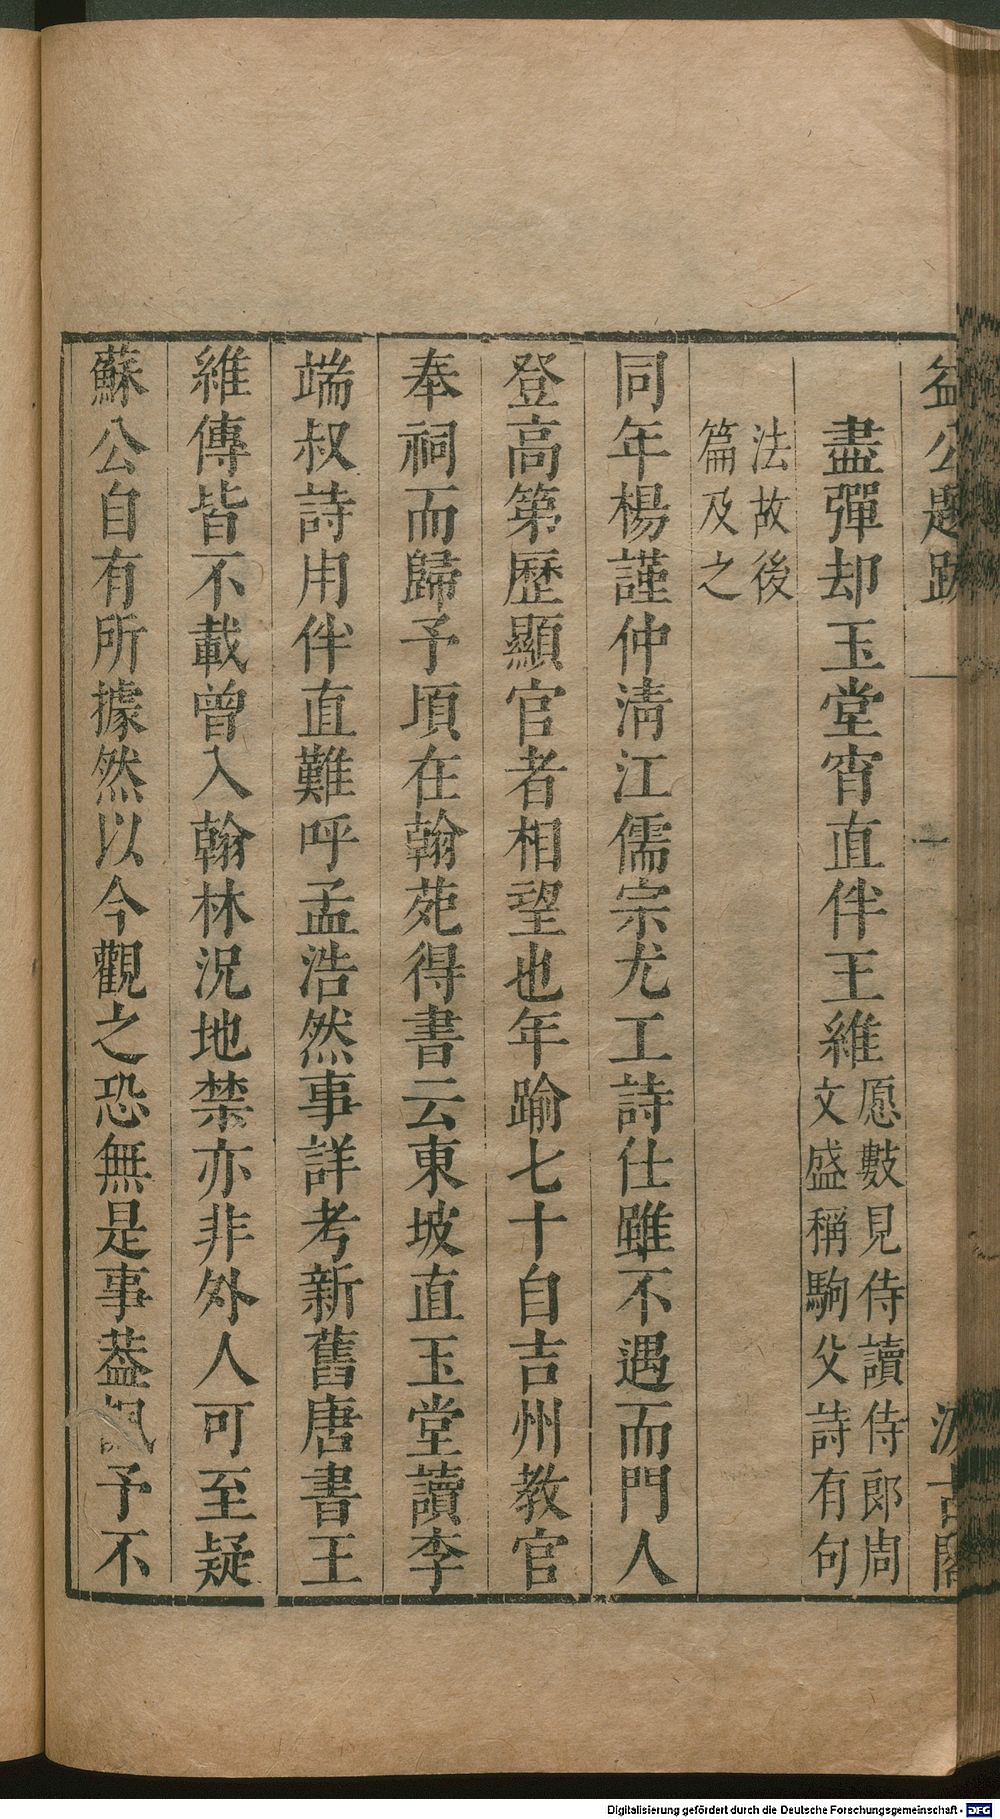 益公題跋
一
汲古閣
盡彈却玉堂宵直伴王維愿數見侍讀侍郎周
文盛稱駒父詩有句
法故後
篇及之
同年楊謹仲清江儒宗尤工詩仕雖不遇而門人
登高第歷顯官者相望也年踰七十自吉州教官
奉祠而歸予頃在翰苑得書云東坡直玉堂讀李
端叔詩用伴直難呼孟浩然事詳考新舊唐書王
維傳皆不載曾入翰林況地禁亦非外人可至疑
蘇公自有所據然以今觀之恐無是事葢諷予不
Digitalisierung gefördert durch die Deutsche Forschungsgemeinschaft - DFG